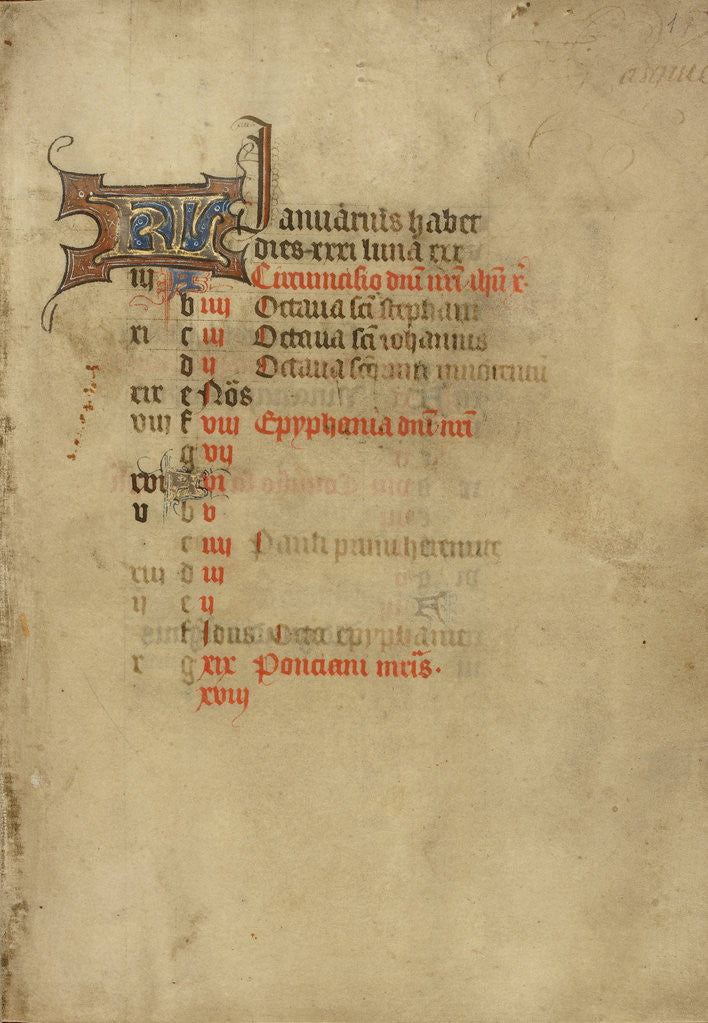 KL
Januarius habet
dies xxxi luna xxx
iij A Circumcisio dñi nr̃i ihũ x̃.
b iiij Octaua sc̃i stephani
xi c iij Octaua sc̃i iohannis
d ij Octaua sc̃orum innocentum
xix e Nõs
viij f viij Epyphania dñi nr̃i
g vij
xvi A vi
v b v
c iiij Pauli primi heremite
xiij d iij
ij e ij
f Idus Octa epyphanie
x g xix Ponciani mr̃is.
xviij